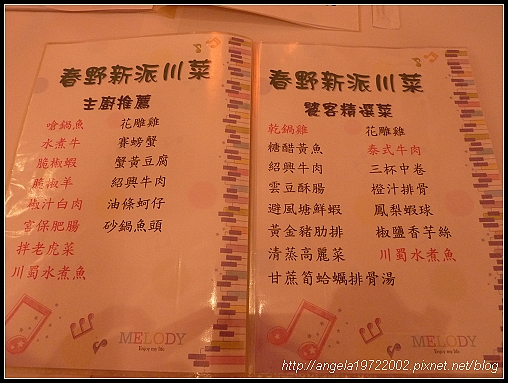 春野新派川菜
主廚推薦
嗆鍋魚 花雕雞
水煮牛 賽螃蟹
脆椒蝦 蟹黃豆腐
脆椒羊 紹興牛肉
椒汁白肉 油條蚵仔
宮保肥腸 砂鍋魚頭
拌老虎菜
川蜀水煮魚
MELODY
Enjoy my life
春野新派川菜
饕客精選菜
乾鍋雞 花雕雞
糖醋黃魚 泰式牛肉
紹興牛肉 三杯中卷
雲豆酥腸 橙汁排骨
避風塘鮮蝦 鳳梨蝦球
黃金豬肋排 椒鹽香芋絲
清蒸高麗菜 川蜀水煮魚
甘蔗筍蛤蠣排骨湯
MELODY
Enjoy my life
http://angela19722002.pixnet.net/blog